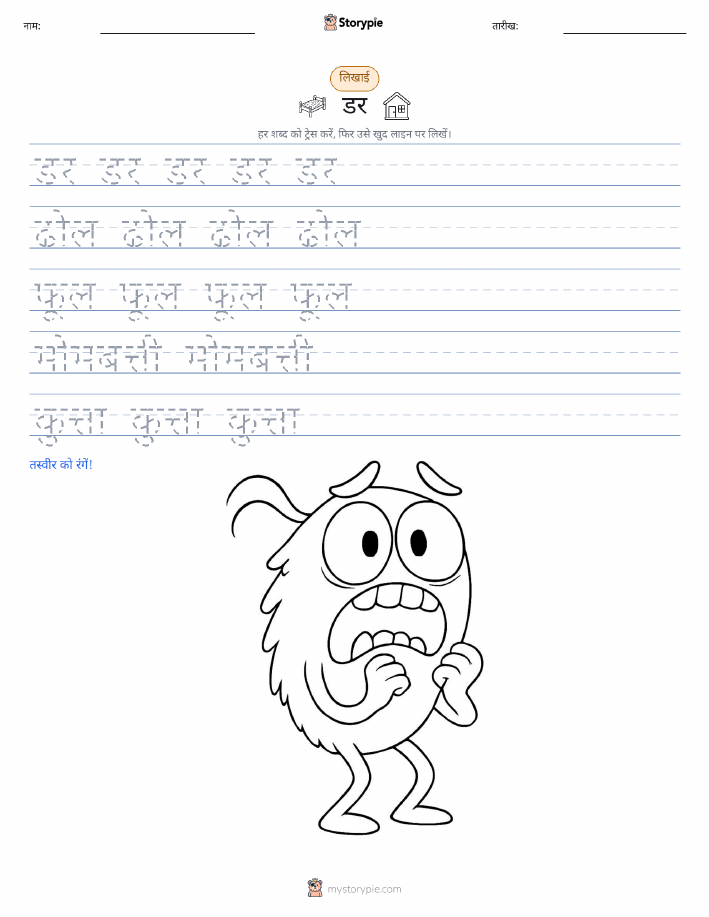 नाम:
Storypie
तारीख:
लिखाई
डर
हर शब्द को ट्रेस करें, फिर उसे खुद लाइन पर लिखें।
डर डर डर डर डर
ढोल ढोल ढोल ढोल
फूल फूल फूल फूल
मोमबत्ती मोमबत्ती
कुत्ता कुत्ता कुत्ता
तस्वीर को रंगें!
mystorypie.com